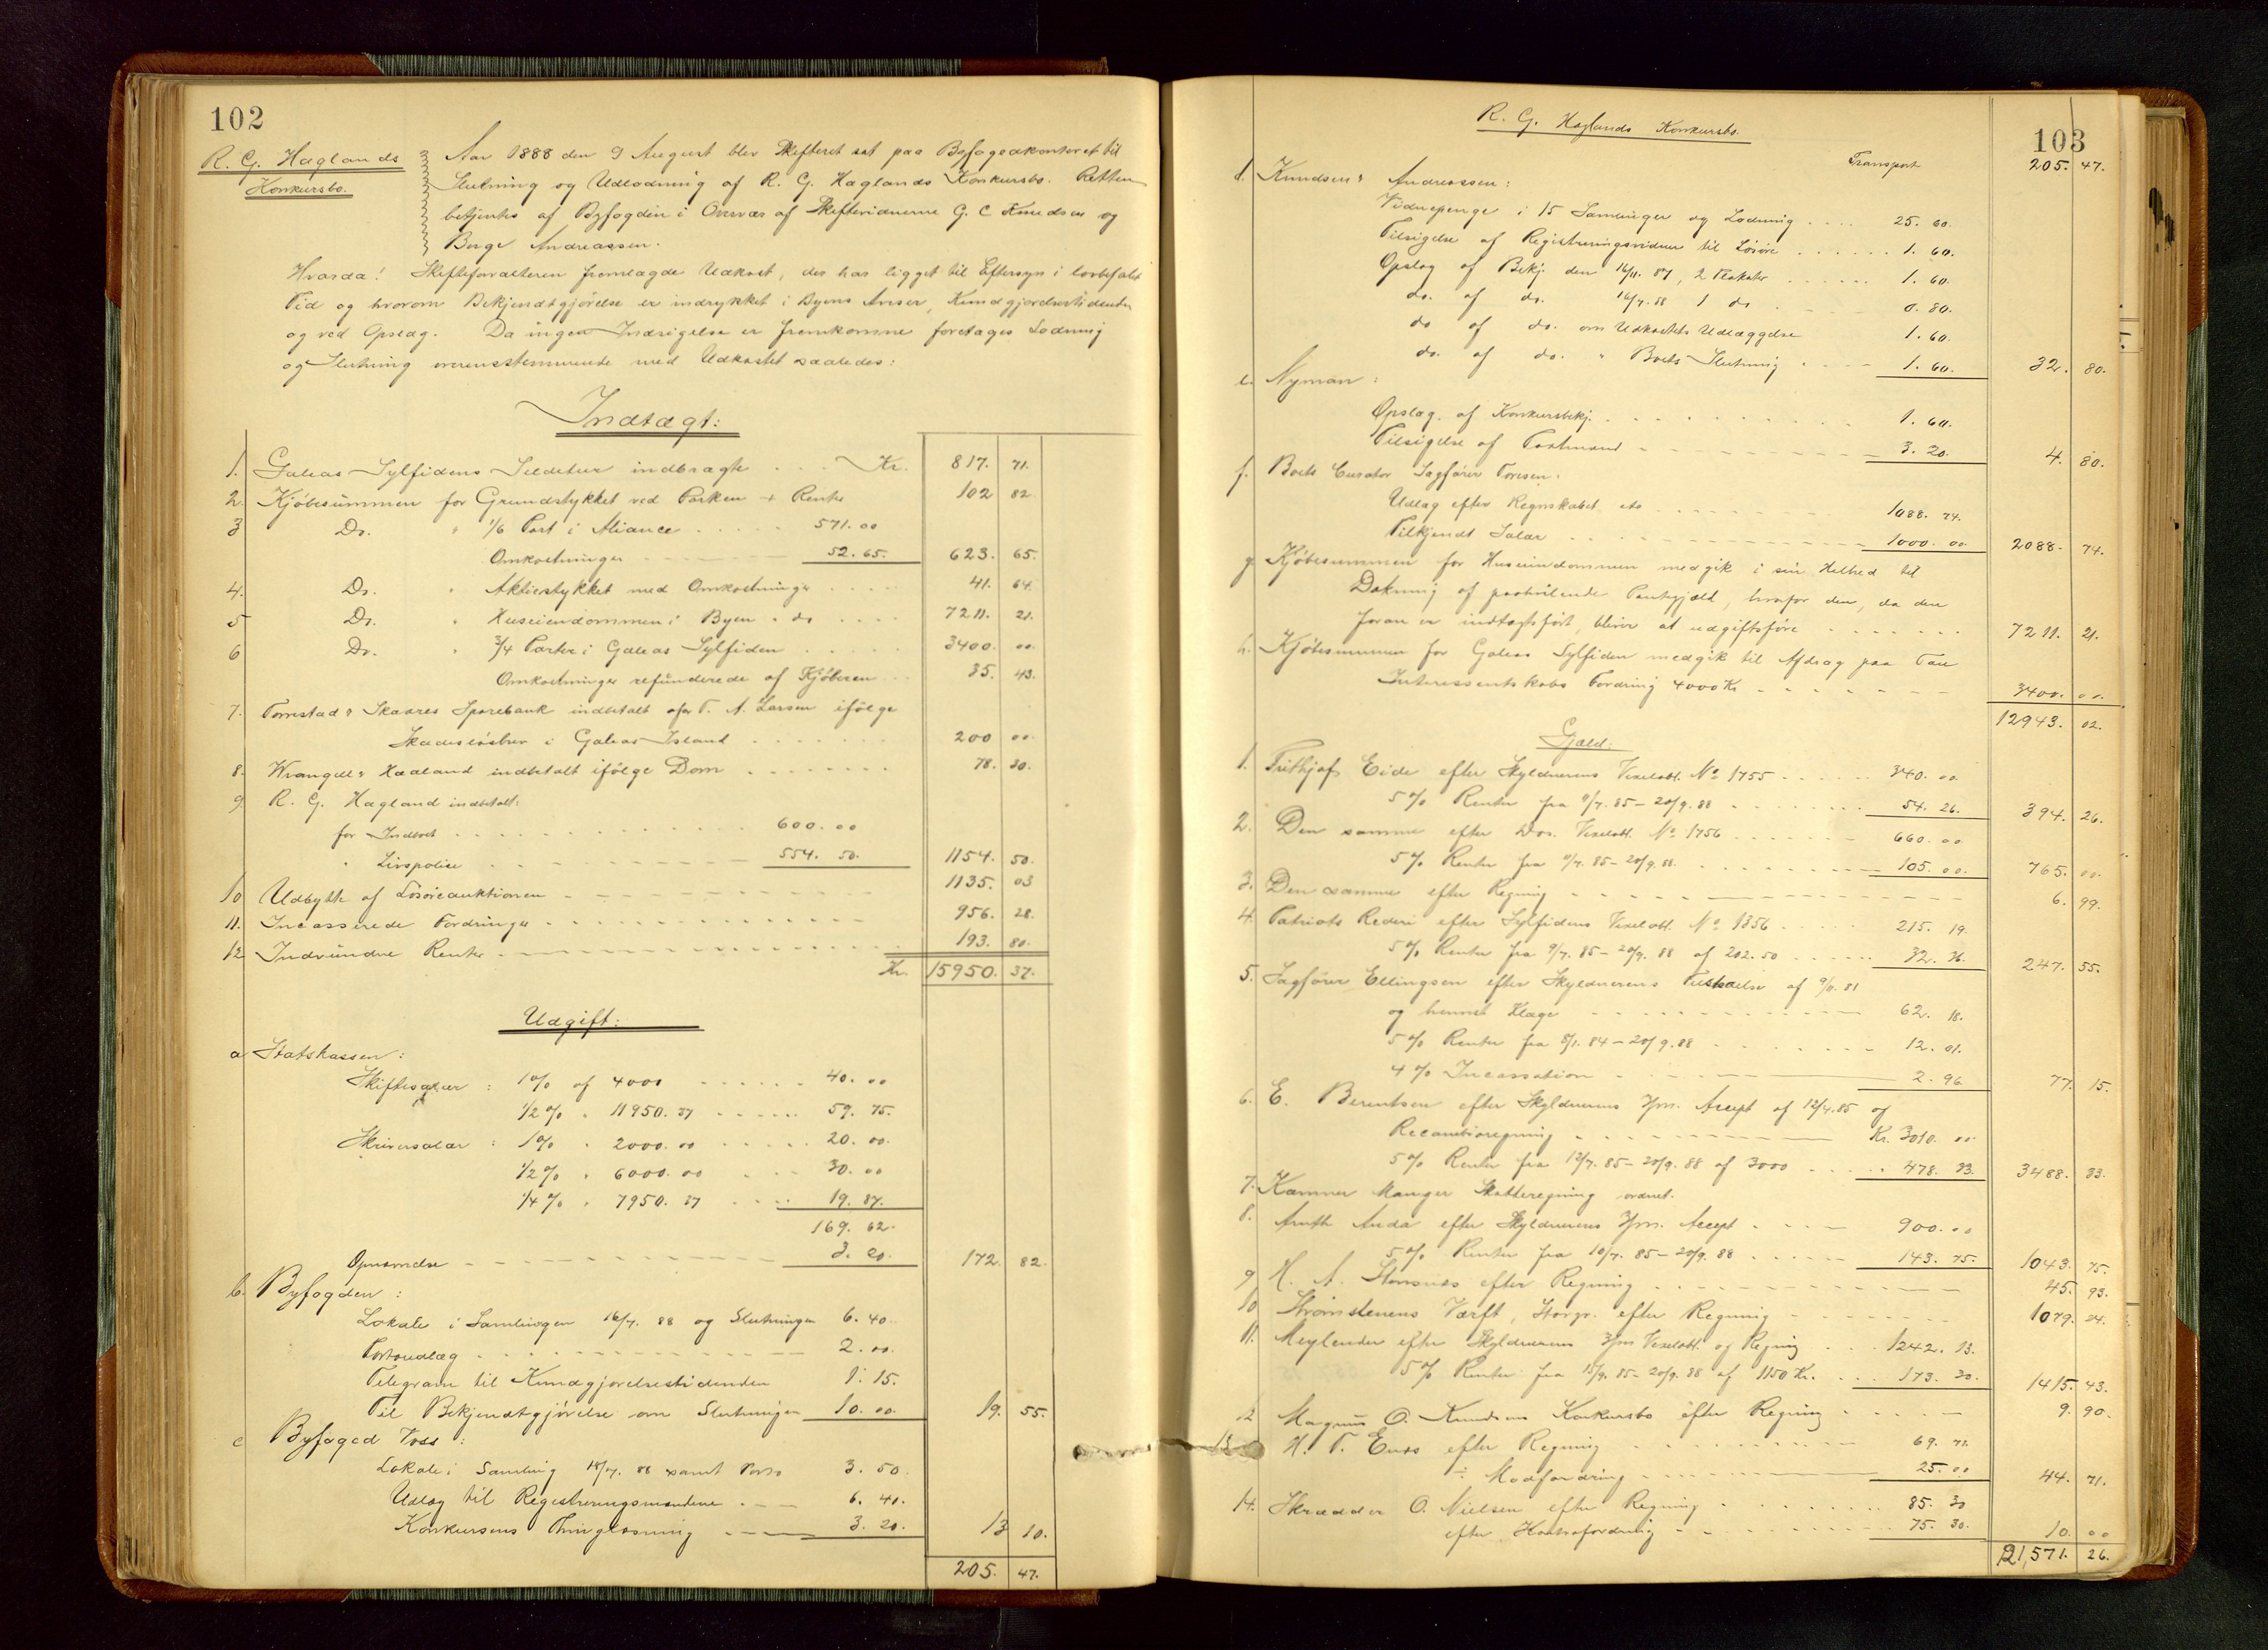 102
R. G. Haglands
Konkursbo.
Aar 1888 den 9 August blev Skifteret sat paa Byfogedkontoret til
Slutning og Udlodning af R. G. Haglands Konkursbo. Retten
betjentes af Byfogden i Overvær af Skiftevidnerne G. C Knudsen og
Børge Andreassen.
Hvorda! Skifteforvalteren fremlagde Udkast, der har ligget til Eftersyn i lovbefalet
Tid og hvorom Bekjendtgjørelse er indrykket i Byens Aviser, Kundgjørelsestidenden
og ved Opslag. Da ingen Indsigelse er fremkomne foretages Lodning
og Slutning overensstemmende med Udkastet saaledes:
Indtægt:
1. Galeas Sylfidens Sildetur indbragte . . . Kr. 817. 71.
2. Kjøbesummen for Grundstykket ved Parken + Renter 102 82
3 Do. " 1/6 Part i Aliance . . . . . 571.00
Omkostninger 52.65. 623. 65.
4. Do. " Aktiestykket med Omkostninger . . . . 41. 64.
5 Do. " Huseiendommen i Byen " do . . . . 7211. 21.
6 Do. " 3/4 Parter i Galeas Sylfiden . . . . . 3400. 00.
Omkostninger refunderede af Kjøberen . . 35. 43.
7. Torvestad & Skaares Sparebank indbetalt af T. A. Larsen ifølge
Skadesløsbrev i Galeas Island . . . . . . . 200 00.
8. Wrangell & Haaland indbetalt ifølge Dom . . . . . . . 78. 30.
9 R. G. Hagland indbetalt:
for Indboet . . . . . . . . . . . . 600.00
" Livspolice 554. 50. 1154. 50.
10 Udbytte af Løsøreauktionen 1135. 03
11. Incasserede Fordringer 956. 28.
12 Indvundne Renter 193. 80.
Kr. 15950. 37.
Udgift:
a Statskassen:
Skiftesalær : 1% af 4000 . . . . . . 40.00
1/2% " 11950.37 . . . . . 59. 75.
Skriversalær : 1% " 2000.00 . . . . . 20.00.
1/2% " 6000.00 . . . 30.00
1/4% " 7950.37 . . . . 19. 87.
169. 62.
Opnævnelse 3. 20. 172. 82.
b. Byfogden :
Lokale i Samlingen 16/7. 88 og Slutningen 6.40.
Portoudlæg 2.00.
Telegram til Kundgjørelsestidenden 1.15.
Til Bekjendtgjørelse om Slutningen 10.00. 19. 55.
c Byfoged Voss :
Lokale i Samling 18/7. 88 samt Porto 3. 50.
Udlæg til Registreringsmændene . 6. 40.
Konkursens Thinglæsning 3. 20. 13 10.
205. 47.
R. G. Haglands Konkursbo.
103
Transport 205. 47.
d. Knudsen & Andreassen:
Vidnepenge i 15 Samlinger og Lodning . . . . 25. 60.
Tilsigelse af Registreringsvidner til Løsøre . . . . . . 1. 60.
Opslag af Bekj. den 16/11. 87, 2 Plakater . . . . . . 1. 60.
do. af do. 16/7. 88 1 do 0. 80.
do af do. om Udkastets Udlæggelse 1. 60.
do. af do. " Boets Slutning . . 1. 60. 32. 80.
e. Nyman :
Opslag af Konkursbekj. 1. 60.
Tilsigelse af Taxtmænd 3. 20. 4. 80.
f. Boets Curator Sagfører Foresen:
Udlæg efter Regnskabet etc 1088. 74.
Tilkjendt Salær 1000.00. 2088. 74.
g Kjøbesummen for Huseiendommen medgik i sin Helhed til
Dækning af paahvilende Pantegjæld, hvorfor den, da den
foran er indtægtsført, bliver at udgiftsføre . . . . . . . 7211. 21.
h. Kjøbesummen for Galeas Sylfiden medgik til Afdrag paa
Interessentskabs Fordring 4000 Kr 3400. 00.
12943. 02.
Gjæld:
1. Frithjof Eide efter Skyldnerens Vexelobl. No 1755 . . . . . 340.00
5% Renter fra 9/7. 85 - 20/9. 88 54. 26. 394. 26.
2. Den samme efter Do. Vexelobl. No 1756 660.00
5% Renter fra 9/7. 85 - 20/9. 88. 105.00. 765. 00.
3. Den samme efter Regning 6. 99.
4. Patriots Rederi efter Sylfidens Vexelobl. No 1356 . . . . . 215. 19.
5% Renter fra 9/7. 85 - 20/9. 88 af 202.50 32. 36. 247. 55.
5. Sagfører Ellingsen efter Skyldnerens Tilstaaelse af 9/11. 81
og henvist Klage 62. 18.
5% Renter fra 8/1. 84 - 20/9.88 12. 01.
4% Incassation 2. 96 77. 15.
6. E. Berentsen efter Skyldnerens 3/m. Accept af 12/4.85 og
Recambioregning Kr. 3010. 00
5% Renter fra 12/7. 85 - 20/9. 88 af 3000 . . . . . 478. 33. 3488. 33.
7. Kæmner Manger Skatteregning ordnet.
8. Arnth Anda efter Skyldnerens 3/m. Accept . . . 900.00
5% Renter fra 10/7. 85 - 20/9. 88 143. 75. 1043. 75.
9 H. A. Stensnes efter Regning 45. 93.
10 Strømstenens Værft, Storgr. efter Regning 1079. 24.
11. Meylender efter Skyldnerens 3/m Vexelobl. og Regning . . . 1242. 13.
5% Renter fra 15/9. 85 - 20/9. 88 af 1150 Kr. . . . 173. 30. 1415. 43.
12 Magnus O. Knudsens Konkursbo efter Regning 9. 90.
13 H. T. Enes efter Regning 69. 71.
÷ Modfordring 25.00 44. 71.
14. Skrædder O. Nielsen efter Regning 85. 30
efter Kontrafordring 75. 30. 10. 00
21,571. 26.